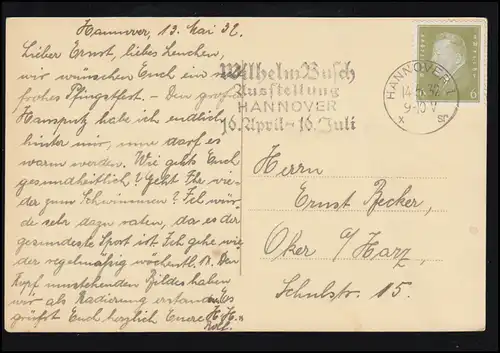 Hannover, 13. Mai 32.
Lieber Ernst, liebes Lenchen,
wir wünschen Euch ein
frohes Pfingstfest. – Den großen
Hausputz habe ich endlich
hinter mir, nun darf es
warm werden. Wie geht's Euch
gesundheitlich? Geht Ihr wie-
da zum Schwimmen? Ich wür-
de sehr dazu raten, da es der
gesundeste Sport ist. Ich gehe wie
der regelmäßig wöchentl. Den
Kopf umstehenden Bildes haben
wir als Radierung erstanden. Es
grüßt Euch herzlich Euere H. H.
Wilhelm Busch
Ausstellung
HANNOVER
16. April – 16. Juli
HANNOVER 1
14.5.32
9-10 V
x SC
6
Herrn
Ernst Becker,
Oker a/Harz,
Schulstr. 15.